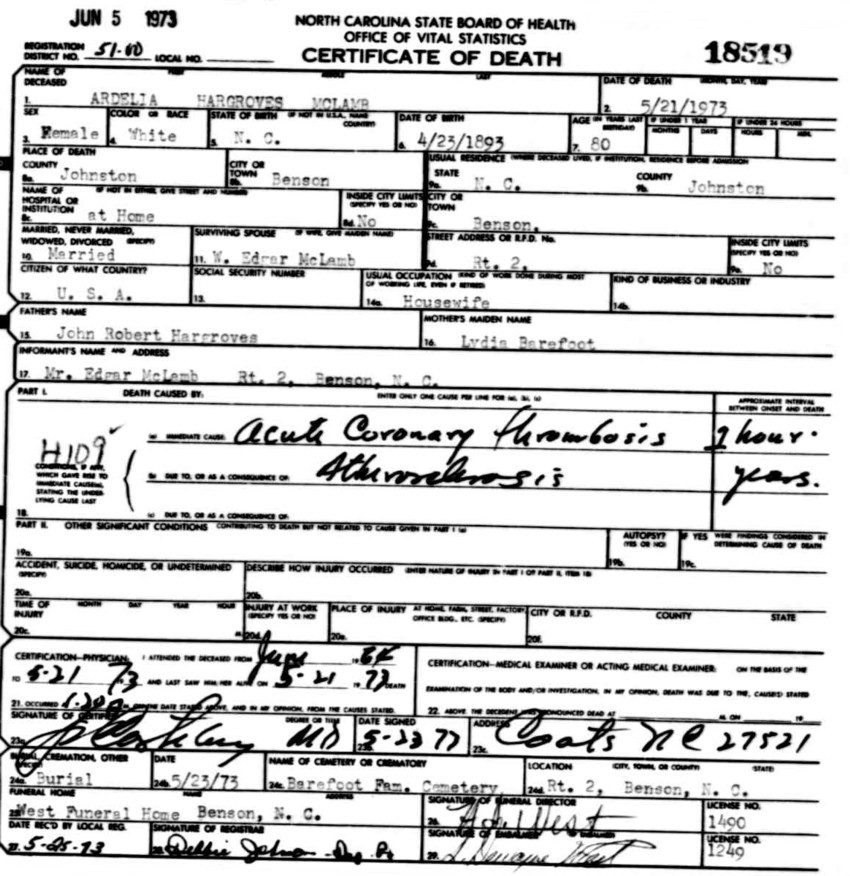 JUN 5 1973
NORTH CAROLINA STATE BOARD OF HEALTH
OFFICE OF VITAL STATISTICS
REGISTRATION DISTRICT NO. 51-00 LOCAL NO.
CERTIFICATE OF DEATH
18519
NAME OF DECEASED FIRST MIDDLE LAST
DATE OF DEATH (MONTH, DAY, YEAR)
1. ARDELIA HARGROVES MCLAMB
2. 5/21/1973
SEX COLOR OR RACE STATE OF BIRTH (IF NOT IN U.S.A., NAME COUNTRY) DATE OF BIRTH AGE (IN YEARS LAST BIRTHDAY) IF UNDER 1 YEAR IF UNDER 24 HOURS
MONTHS DAYS HOURS MIN.
3. Female 4. White 5. N. C. 6. 4/23/1893 7. 80
PLACE OF DEATH
USUAL RESIDENCE (WHERE DECEASED LIVED, IF INSTITUTION, RESIDENCE BEFORE ADMISSION
COUNTY CITY OR TOWN STATE COUNTY
8a. Johnston 8b. Benson 9a. N. C. 9b. Johnston
NAME OF HOSPITAL OR INSTITUTION (IF NOT IN EITHER, GIVE STREET AND NUMBER) INSIDE CITY LIMITS (SPECIFY YES OR NO) CITY OR TOWN
8c. at Home 8d. No 9c. Benson,
MARRIED, NEVER MARRIED, WIDOWED, DIVORCED (SPECIFY) SURVIVING SPOUSE (IF WIFE, GIVE MAIDEN NAME) STREET ADDRESS OR R.F.D. No. INSIDE CITY LIMITS (SPECIFY YES OR NO)
10. Married 11. W. Edgar McLamb 9d. Rt. 2, 9e. No
CITIZEN OF WHAT COUNTRY? SOCIAL SECURITY NUMBER USUAL OCCUPATION (KIND OF WORK DONE DURING MOST OF WORKING LIFE, EVEN IF RETIRED) KIND OF BUSINESS OR INDUSTRY
12. U. S. A. 13. 14a. Housewife 14b.
FATHER'S NAME MOTHER'S MAIDEN NAME
15. John Robert Hargroves 16. Lydia Barefoot
INFORMANT'S NAME AND ADDRESS
17. Mr. Edgar McLamb Rt. 2, Benson, N. C.
PART I. DEATH CAUSED BY: ENTER ONLY ONE CAUSE PER LINE FOR (a), (b), (c) APPROXIMATE INTERVAL BETWEEN ONSET AND DEATH
(a) IMMEDIATE CAUSE: Acute Coronary thrombosis 1 hour.
H109
CONDITIONS, IF ANY, WHICH GAVE RISE TO IMMEDIATE CAUSE(A), STATING THE UNDERLYING CAUSE LAST
(b) DUE TO, OR AS A CONSEQUENCE OF: Atherosclerosis years.
18. (c) DUE TO, OR AS A CONSEQUENCE OF:
PART II. OTHER SIGNIFICANT CONDITIONS CONTRIBUTING TO DEATH BUT NOT RELATED TO CAUSE GIVEN IN PART I (a) AUTOPSY? (YES OR NO) IF YES WERE FINDINGS CONSIDERED IN DETERMINING CAUSE OF DEATH
19a. 19b. 19c.
ACCIDENT, SUICIDE, HOMICIDE, OR UNDETERMINED (SPECIFY) DESCRIBE HOW INJURY OCCURRED (ENTER NATURE OF INJURY IN PART I OR PART II, ITEM 18)
20a. 20b.
TIME OF INJURY MONTH DAY YEAR HOUR INJURY AT WORK (SPECIFY YES OR NO) PLACE OF INJURY AT HOME, FARM, STREET, FACTORY, OFFICE BLDG., ETC. (SPECIFY) CITY OR R.F.D. COUNTY STATE
20c. M. 20d. 20e. 20f.
CERTIFICATION—PHYSICIAN: I ATTENDED THE DECEASED FROM June 19 CERTIFICATION—MEDICAL EXAMINER OR ACTING MEDICAL EXAMINER: ON THE BASIS OF THE
TO 5-21 73 AND LAST SAW HIM/HER ALIVE ON 5-21 1973 DEATH EXAMINATION OF THE BODY AND/OR INVESTIGATION, IN MY OPINION, DEATH WAS DUE TO THE, CAUSE(S) STATED
21. OCCURRED ON THE DATE STATED ABOVE, AND IN MY OPINION, FROM THE CAUSES STATED. 22. ABOVE. THE DECEDENT WAS PRONOUNCED DEAD AT M. ON 19
SIGNATURE OF CERTIFIER DEGREE OR TITLE DATE SIGNED ADDRESS
23a. MD 5-23 73 23c. Coats NC 27521
BURIAL, CREMATION, OTHER (SPECIFY) DATE NAME OF CEMETERY OR CREMATORY LOCATION (CITY, TOWN, OR COUNTY) (STATE)
24a. Burial 24b. 5/23/73 24c. Barefoot Fam. Cemetery 24d. Rt. 2, Benson, N. C.
FUNERAL HOME NAME ADDRESS SIGNATURE OF FUNERAL DIRECTOR LICENSE NO.
25. West Funeral Home Benson, N. C. 26. West 1490
DATE REC'D BY LOCAL REG. SIGNATURE OF REGISTRAR SIGNATURE OF EMBALMER LICENSE NO.
27. 5-25-73 28. Debbie Johnson Dep. 29. West 1249